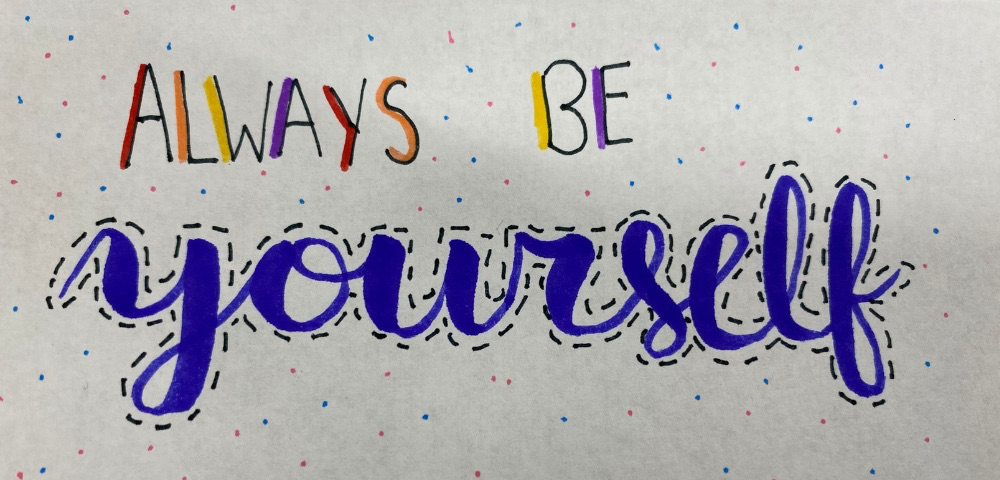 ALWAYS BE
yourself